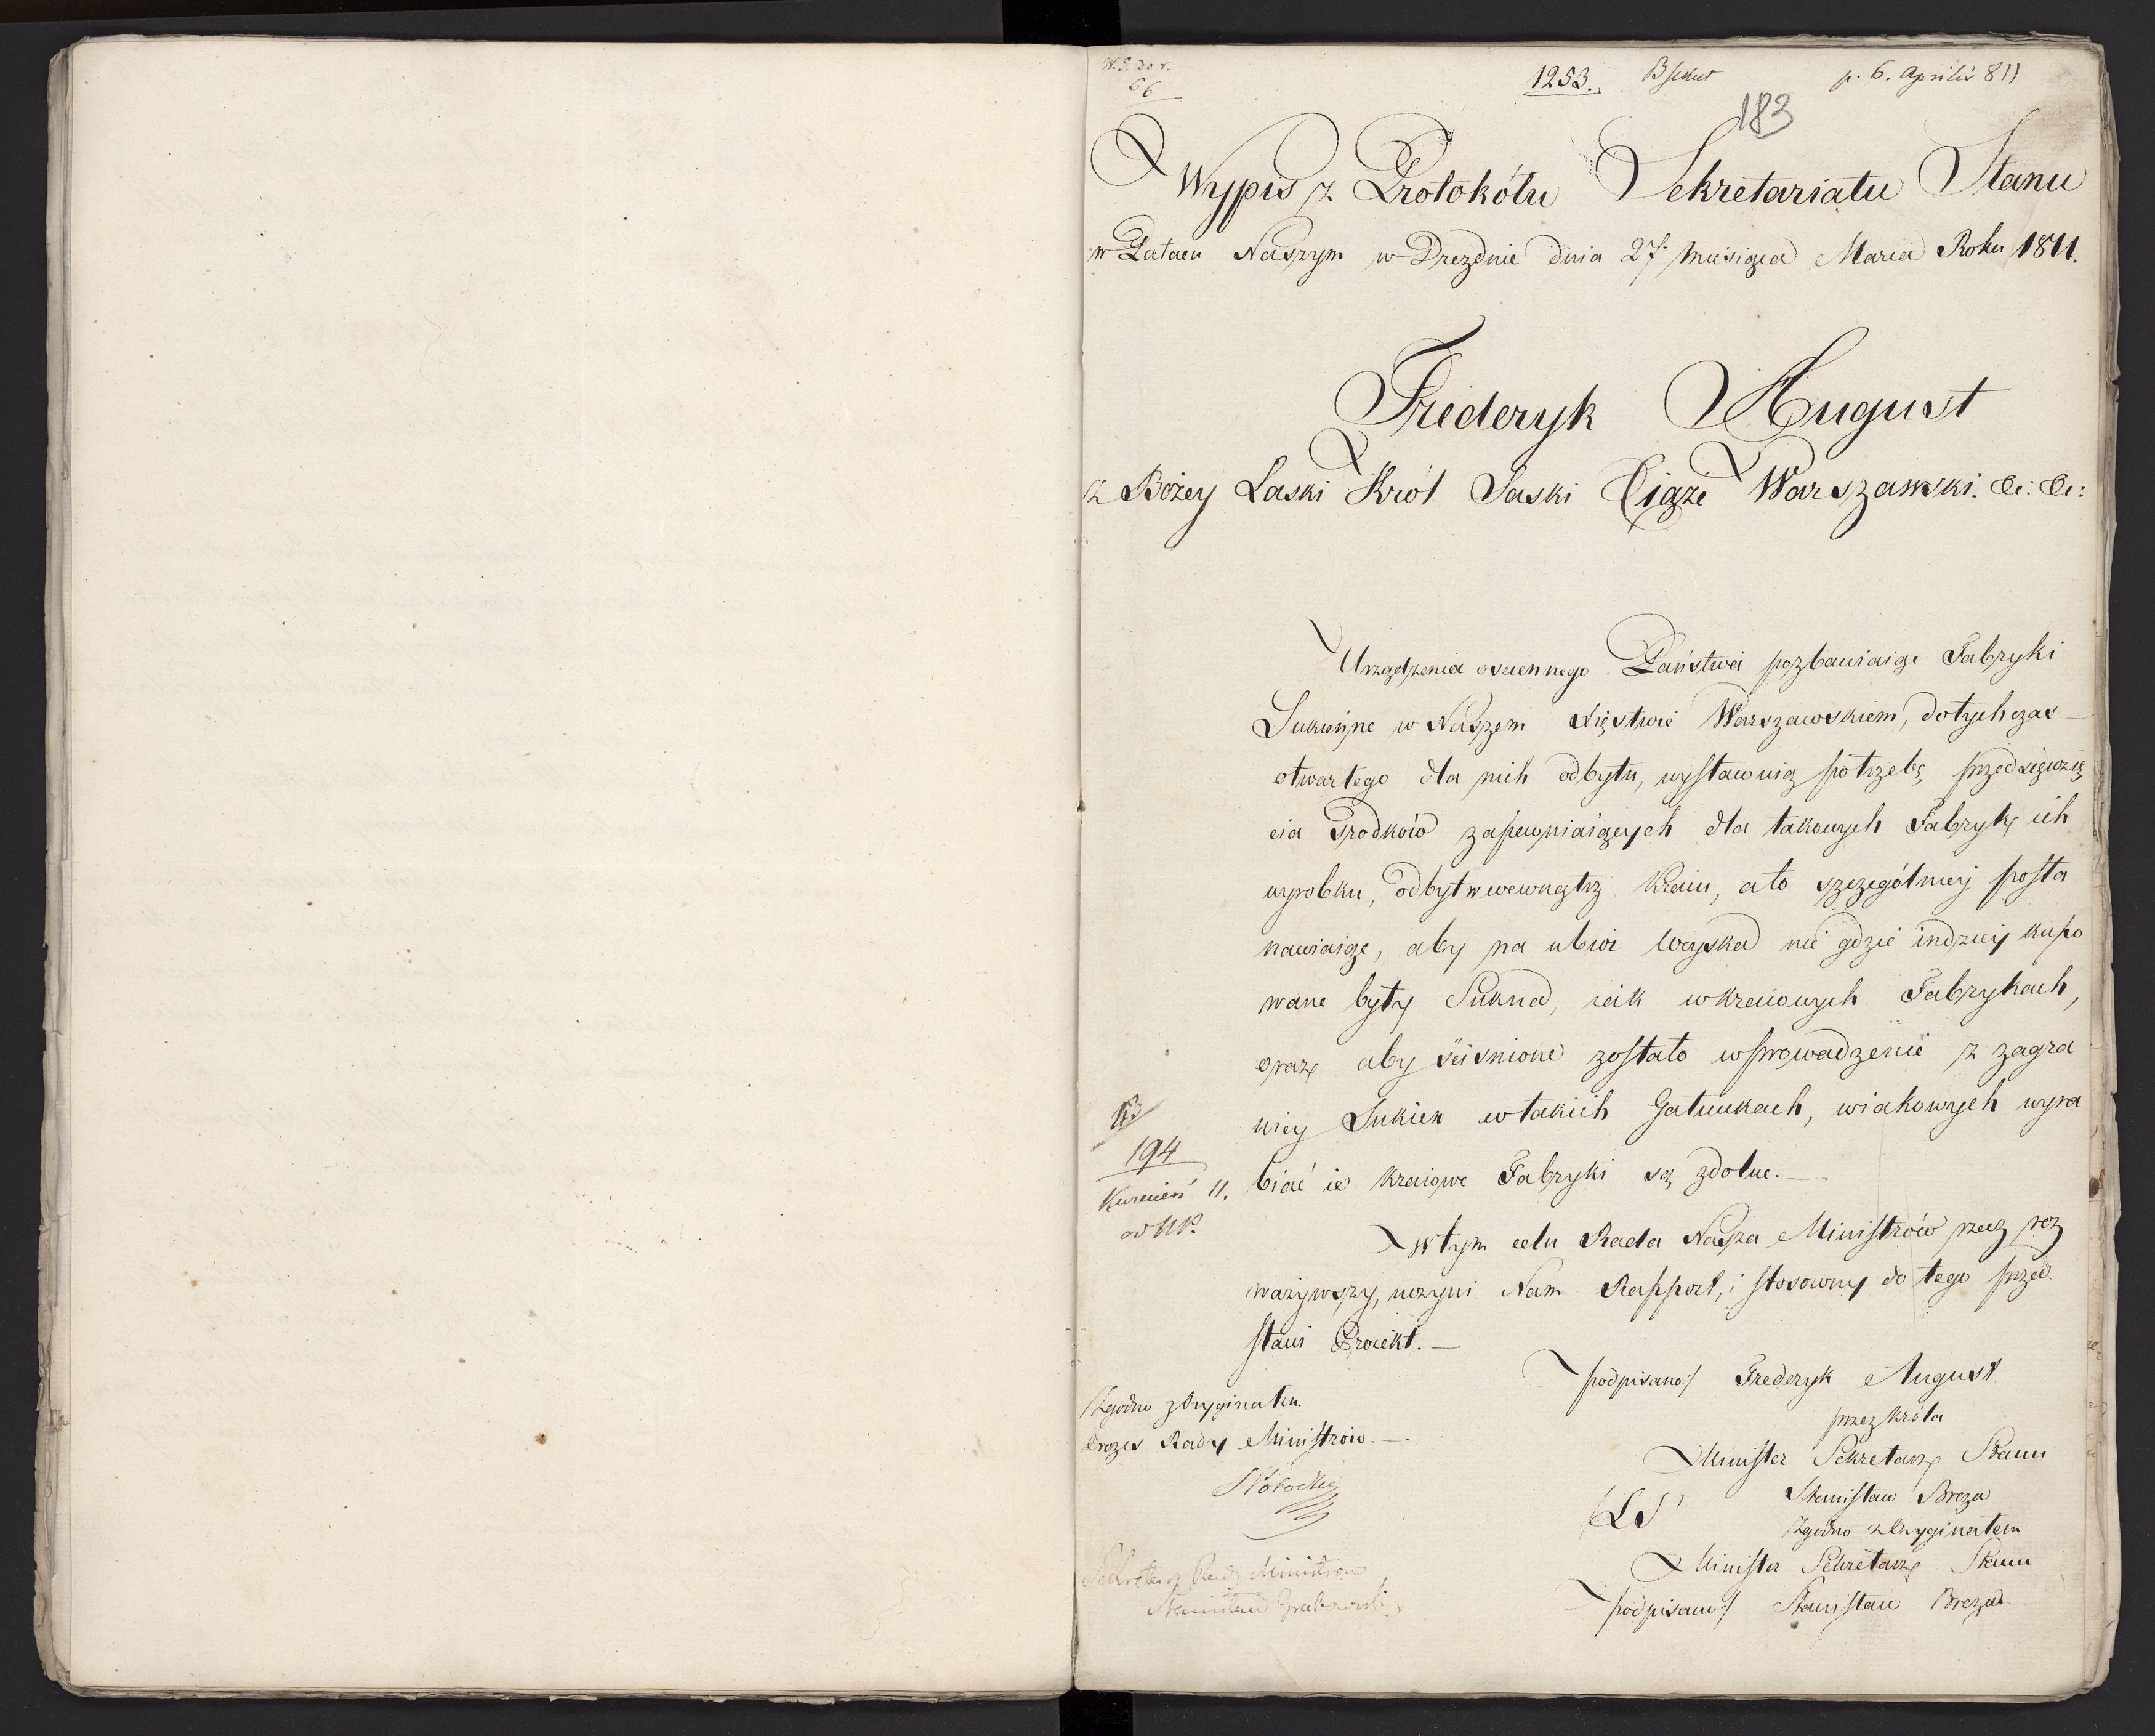 66
1253. p. 6. Aprilis 811
183
Wypis z Protokółu Sekretariatu Stanu
w Pałacu Naszym w Dreznie dnia 27. Miesiąca Marca Roku 1811.
Frederyk August
z Bożey Łaski Król Saski Xiąże Warszawski. &c: &c:
Urządzenia osciennego Państwa pozbawiaiąc Fabryki
Sukienne w Naszem Xięstwie Warszawskiem, dotychczas
otwartego dla nich odbytu, wystawuią potrzebę przedsięwzię
cia srodków zapewniaiących dla takowych Fabryk, ich
wyrobku, odbyt wewnątrz Kraiu, a to szczególniey posta
nawiaiąc, aby na ubior woyska nie gdzie indziey kupo
wane były Sukna, iak w kraiowych Fabrykach,
oraz aby ścisnione zostało wprowadzenie z zagra
nicy Sukien w takich Gatunkach, w iakowych wyra
biać ie kraiowe Fabryki są zdolne. —
194
Kwiecień 11.
W tym celu Rada Nasza Ministrów rzecz roz
ważywszy, uczyni Nam Rapport, i stosowny do tego przed
stawi Proiekt. —
podpisano:/ Frederyk August
przez Króla
Minister Sekretarz Stanu
(LS) Stanisław Breza
Zgodno z Oryginałem
Minister Sekretarz Stanu
podpisano:/ Stanisław Breza
Zgodno z Oryginałem
Prezes Rady Ministrów. —
Sekretarz Rady Ministrow
Stanisław Grabowski